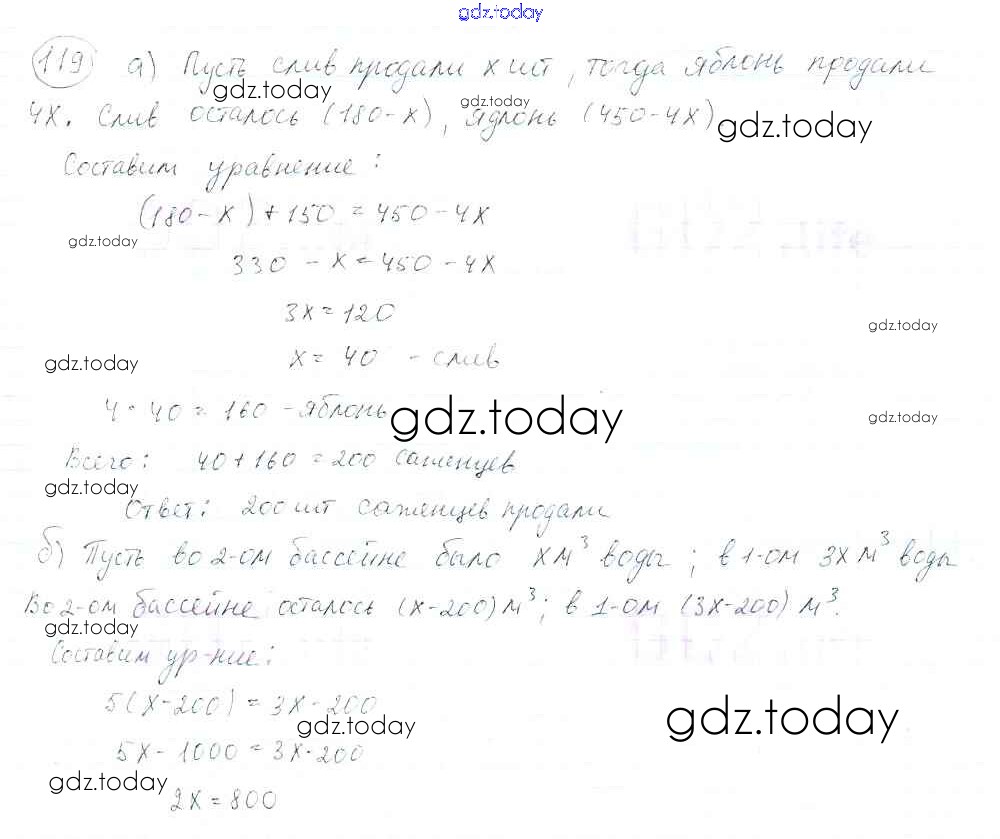 gdz.today
119 а) Пусть слив продали х шт, тогда яблонь продали
gdz.today
gdz.today
4х. Слив осталось (180-х), яблонь (450-4х)
gdz.today
Составим уравнение:
(180-х)+150=450-4х
gdz.today
330-х=450-4х
3х=120
gdz.today
х=40 - слив
gdz.today
4·40=160-яблонь
gdz.today
gdz.today
Всего: 40+160=200 саженцев
gdz.today
Ответ: 200 шт саженцев продали
б) Пусть во 2-ом бассейне было х м³ воды; в 1-ом 3х м³ воды
Во 2-ом бассейне осталось (х-200) м³; в 1-ом (3х-200) м³.
gdz.today
Составим ур-ние:
5(х-200)=3х-200
gdz.today
gdz.today
5х-1000=3х-200
gdz.today
2х=800